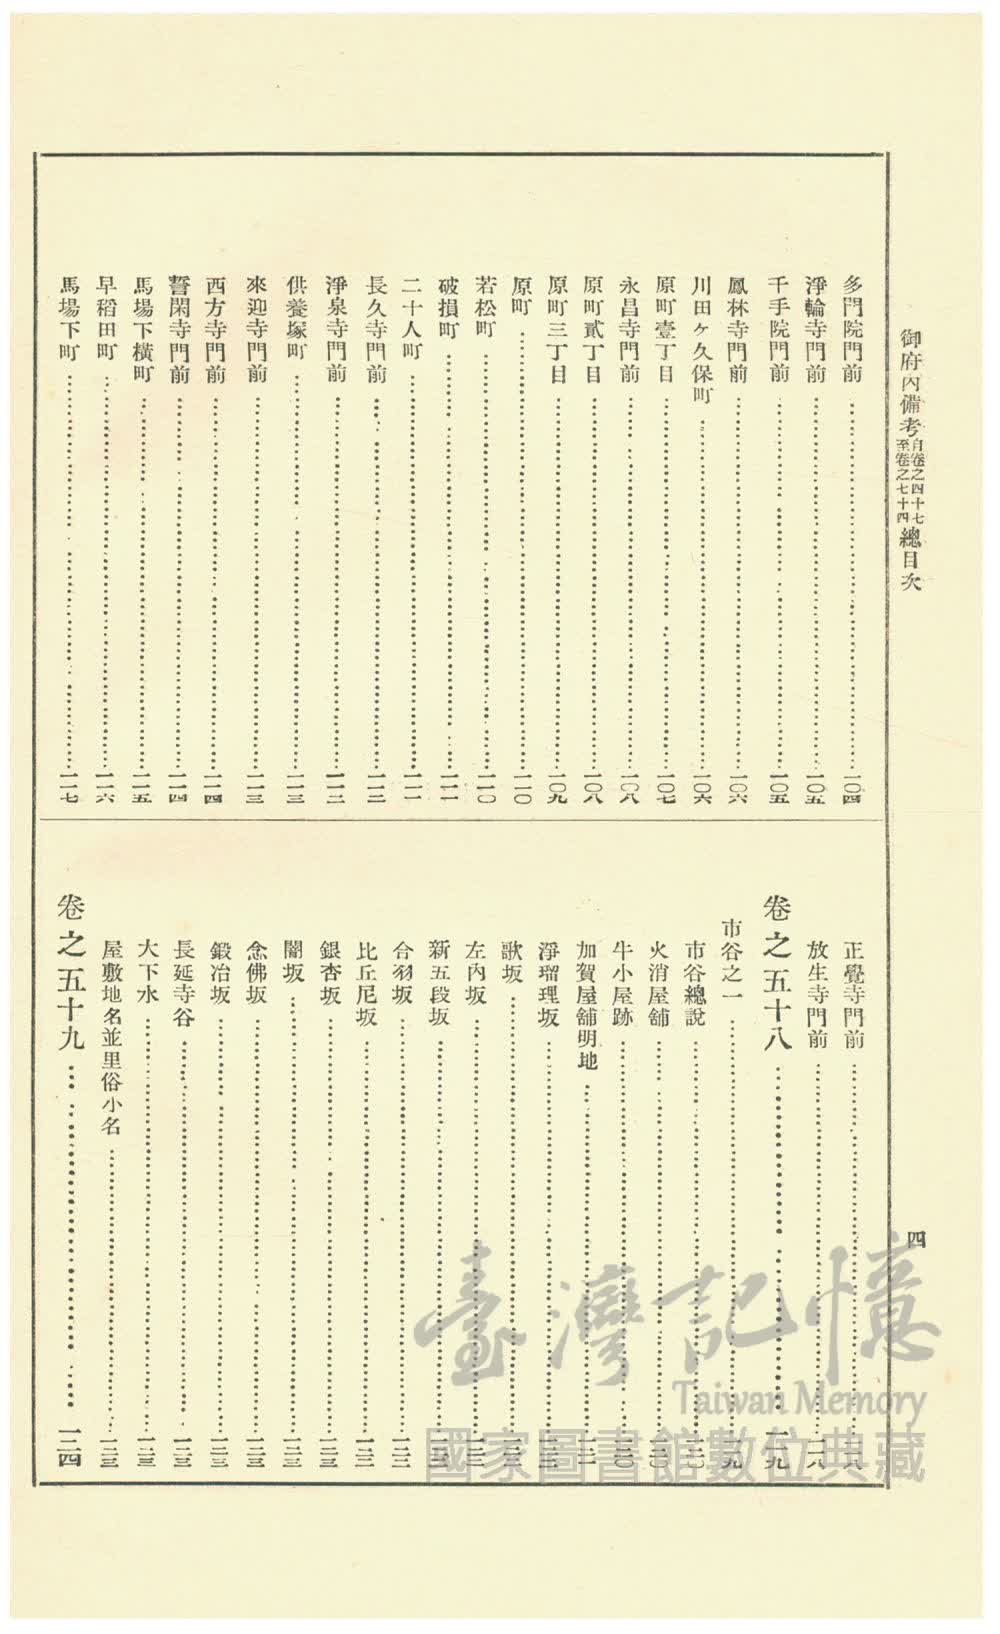 御府內備考 自卷之四十七 至卷之七十四 總目次
四
多門院門前……一〇四
淨輪寺門前……一〇五
千手院門前……一〇五
鳳林寺門前……一〇六
川田ヶ久保町……一〇六
原町壹丁目……一〇七
永昌寺門前……一〇八
原町貳丁目……一〇八
原町三丁目……一〇九
原町……一一〇
若松町……一一〇
破損町……一一一
二十人町……一一一
長久寺門前……一一二
淨泉寺門前……一一二
供養塚町……一一三
來迎寺門前……一一三
西方寺門前……一一四
誓閑寺門前……一一四
馬場下橫町……一一五
早稻田町……一一六
馬場下町……一一七
正覺寺門前……一一八
放生寺門前……一一八
卷之五十八……一一九
市谷之一……一一九
市谷總說……
火消屋舖……
牛小屋跡……
加賀屋舖明地……
淨瑠理坂……
歌坂……
左內坂……
新五段坂……
合羽坂……
比丘尼坂……
銀杏坂……
闇坂……
念佛坂……
鍛冶坂……
長延寺谷……
大下水……
屋敷地名並里俗小名……
卷之五十九……一二四
臺灣記憶
Taiwan Memory
國家圖書館數位典藏